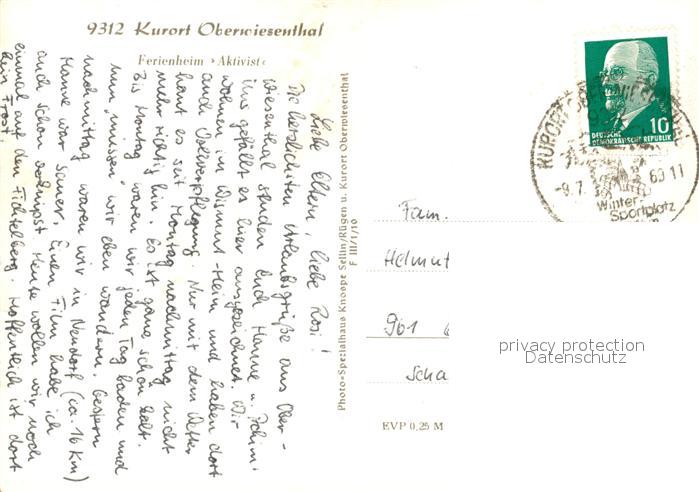 9312 Kurort Oberwiesenthal
Ferienheim ›Aktivist‹
Liebe Eltern, liebe Rosi!
Die herzlichsten Urlaubsgrüße aus Ober-
wiesenthal senden Euch Hanne u. Achim.
Uns gefällt es hier ausgezeichnet. Wir
wohnen im Wismut-Heim und haben dort
auch Vollverpflegung. Nur mit dem Wetter
haut es seit Montag nachmittag nicht
mehr richtig hin. Es ist ganz schön kalt.
Bis Montag waren wir jeden Tag baden und
nun "müssen" wir eben wandern. Gestern
nachmittag waren wir in Neudorf (ca. 16 km)
Hanne war sauer. Einen Film habe ich
auch schon verknipst. Heute wollen wir noch
einmal auf den Fichtelberg. Hoffentlich ist dort
kein Frost.
Photo-Spezialhaus Knospe Sellin/Rügen u. Kurort Oberwiesenthal
F III/1/10
10
DEUTSCHE
DEMOKRATISCHE REPUBLIK
KURORT OBERWIESENTHAL
-9.7
69.11
Winter-
Sportplatz
Fam.
Helmut
961
Scha
privacy protection
Datenschutz
EVP 0,25 M